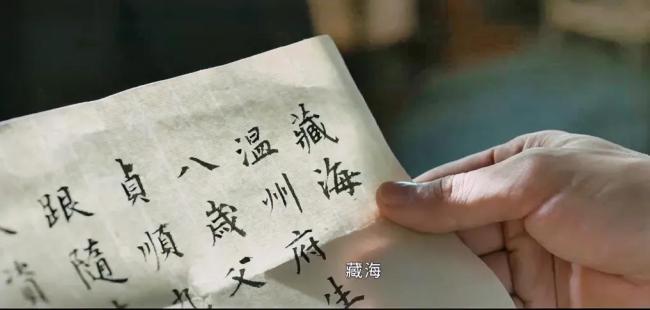 藏海
温州府生
八歲父
貞順
跟隨
藏海